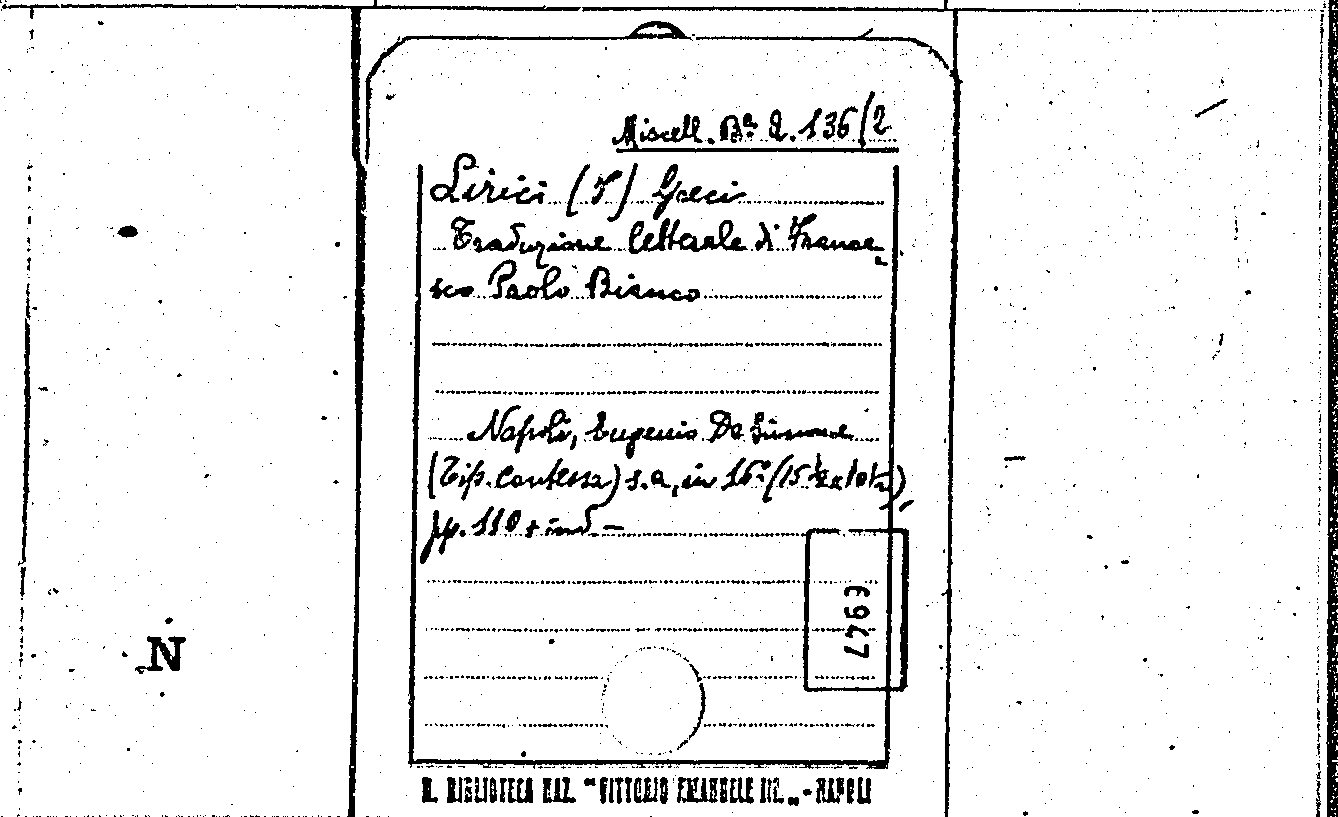 Miscell. Bª Q. 136/2
Lirici (I) Greci
Traduzione letterale di France-
sco Paolo Bianco
Napoli, Eugenio De Simone
(Tip. Contessa) s.a, in 16º (15½x10½),
pp. 110 + ind. –
3947
N
R. BIBLIOTECA NAZ. "VITTORIO EMANUELE III„ - NAPOLI